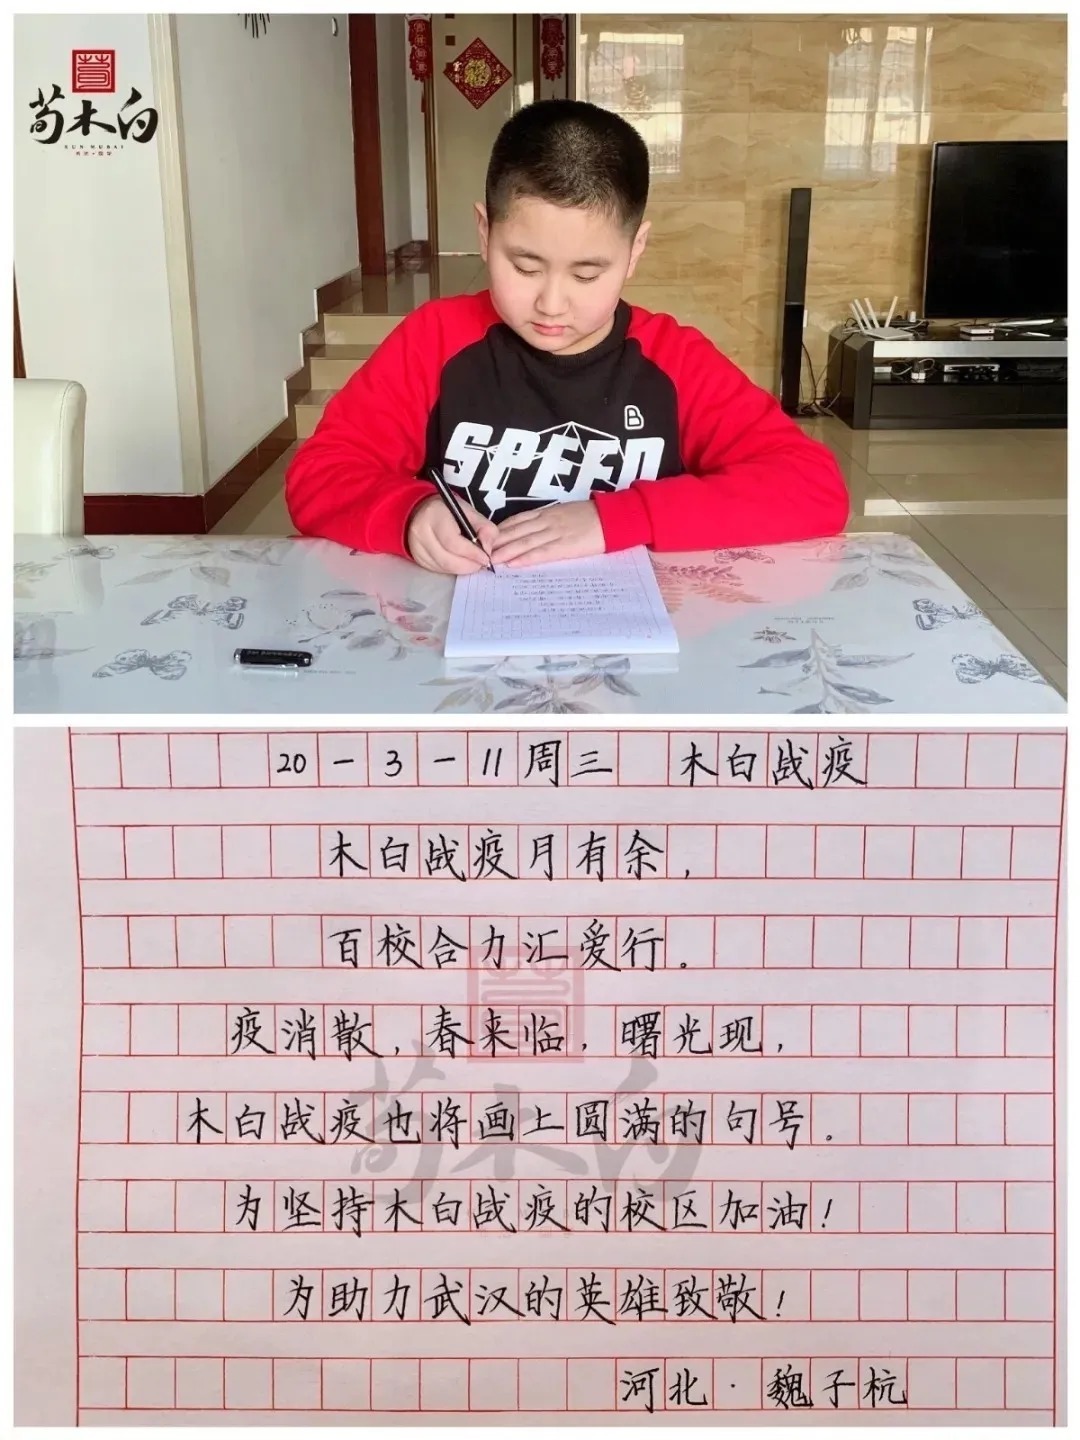 荀木白
SUN MUBAI
福
B
SPEED
20-3-11周三 木白战疫
木白战疫月有余,
百校合力汇爱行。
疫消散,春来临,曙光现,
木白战疫也将画上圆满的句号。
为坚持木白战疫的校区加油!
为助力武汉的英雄致敬!
河北·魏子杭